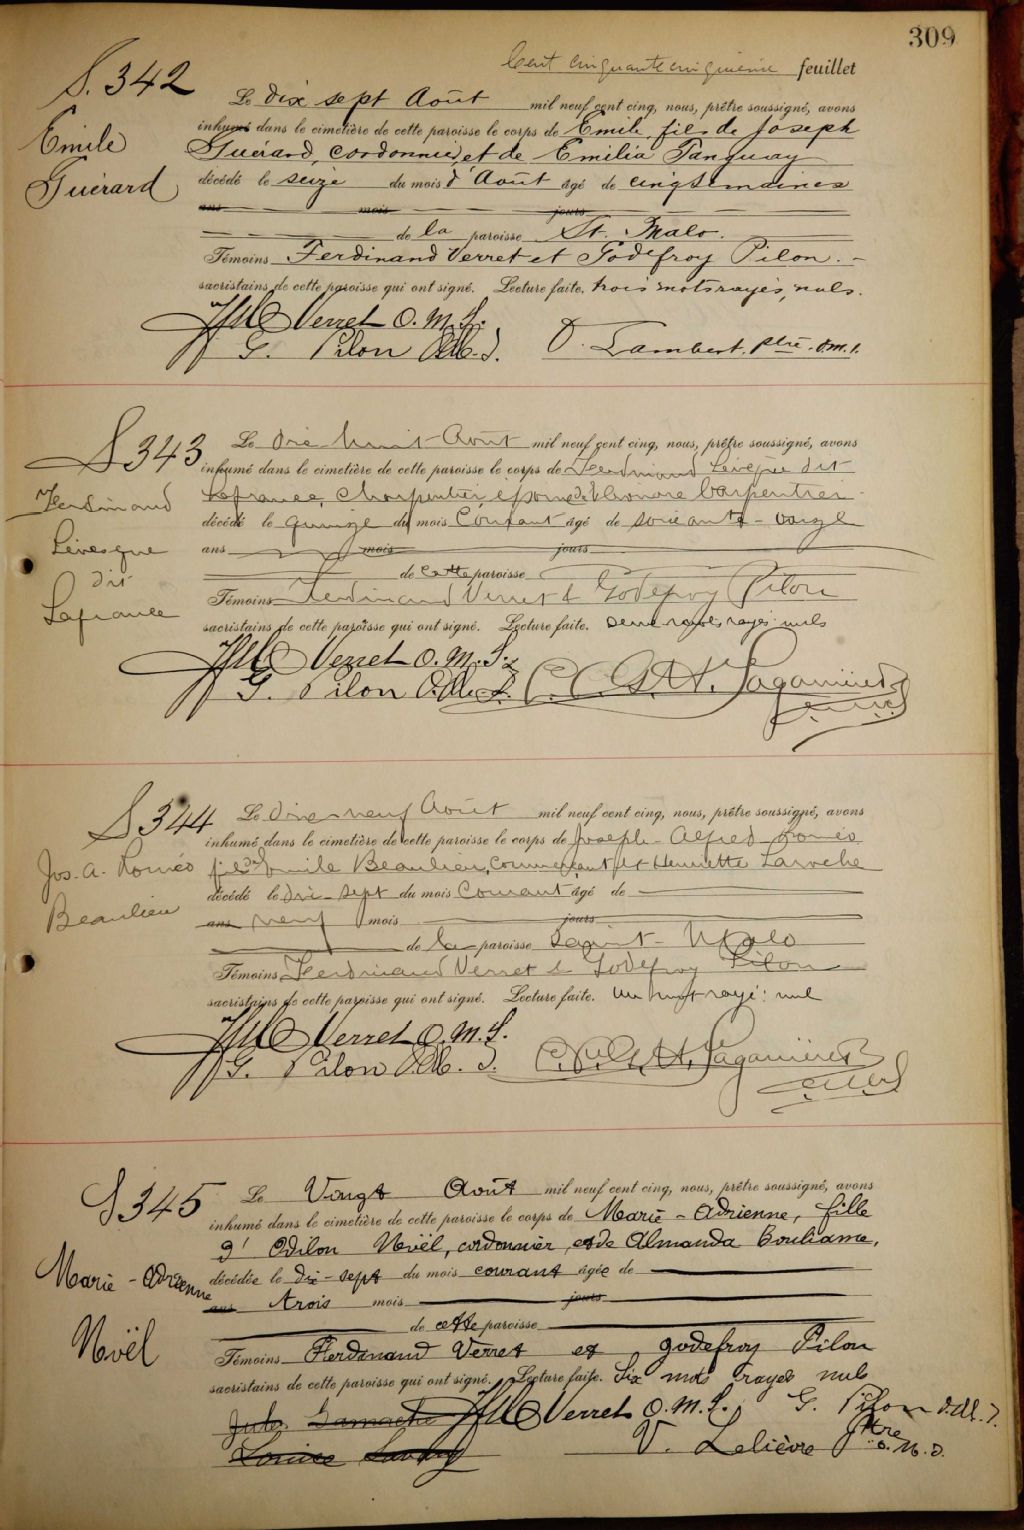 309
Cent cinquante cinquième feuillet
S. 342
Emile
Guérard
Le dix sept Août mil neuf cent cinq, nous, prêtre soussigné, avons
inhumé dans le cimetière de cette paroisse le corps de Emile, fils de Joseph
Guérard, cordonnier, et de Emilia Tanguay
décédé le seize du mois d'Août âgé de cinq semaines
ans mois jours
de la paroisse St. Malo.
Témoins Ferdinand Verret et Godefroy Pilon. -
sacristains de cette paroisse qui ont signé. Lecture faite. trois mots rayés, nuls.
Verret O. M. I.
G. Pilon O.M. I. O. Lambert, ptre. o.m.i.
S 343
Ferdinand
Lévesque
dit
Lafrance
Le dix huit Août mil neuf cent cinq, nous, prêtre soussigné, avons
inhumé dans le cimetière de cette paroisse le corps de Ferdinand Lévesque dit
Lafrance, Charpentier, époux d'Eléonore Carpentier
décédé le quinze du mois Courant âgé de soixante-onze
ans mois jours
de cette paroisse
Témoins Ferdinand Verret & Godefroy Pilon
sacristains de cette paroisse qui ont signé. Lecture faite. Deux mots rayés nuls
Verret O. M. I.
G. Pilon O.M. I.
S 344
Jos. A. Roméo
Beaulieu
Le dix-neuf Août mil neuf cent cinq, nous, prêtre soussigné, avons
inhumé dans le cimetière de cette paroisse le corps de Joseph - Alfred Roméo
fils d'Emile Beaulieu, Commerçant et Henriette Laroche
décédé le dix-sept du mois Courant âgé de
ans neuf mois jours
de la paroisse Saint-Malo
Témoins Ferdinand Verret & Godefroy Pilon
sacristains de cette paroisse qui ont signé. Lecture faite. un mot rayé: nul
Verret O. M. I.
G. Pilon O.M. I.
S 345
Marie - Adrienne
Noël
Le Vingt Août mil neuf cent cinq, nous, prêtre soussigné, avons
inhumé dans le cimetière de cette paroisse le corps de Marie - Adrienne, fille
d' Odilon Noël, cordonnier, et de Almanda Bouliame,
décédée le dix-sept du mois courant âgée de
ans trois mois jours
de cette paroisse
Témoins Ferdinand Verret et Godefroy Pilon
sacristains de cette paroisse qui ont signé. Lecture faite. Six mots rayés nuls
Jules Gamache Verret O. M. I. G. Pilon O.M. I.
Louise Savary V. Lelièvre Ptre o. M. I.